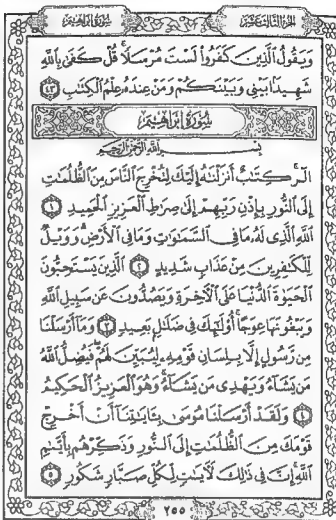 الجزء الثالث عشر
سورة إبراهيم
وَيَقُولُ ٱلَّذِينَ كَفَرُوا۟ لَسْتَ مُرْسَلًا ۚ قُلْ كَفَىٰ بِٱللَّهِ
شَهِيدًۢا بَيْنِى وَبَيْنَكُمْ وَمَنْ عِندَهُۥ عِلْمُ ٱلْكِتَٰبِ ٤٣
سُورَةُ إِبْرَاهِيمَ
بِسْمِ ٱللَّهِ ٱلرَّحْمَٰنِ ٱلرَّحِيمِ
الٓر ۚ كِتَٰبٌ أَنزَلْنَٰهُ إِلَيْكَ لِتُخْرِجَ ٱلنَّاسَ مِنَ ٱلظُّلُمَٰتِ
إِلَى ٱلنُّورِ بِإِذْنِ رَبِّهِمْ إِلَىٰ صِرَٰطِ ٱلْعَزِيزِ ٱلْحَمِيدِ ١
ٱللَّهِ ٱلَّذِى لَهُۥ مَا فِى ٱلسَّمَٰوَٰتِ وَمَا فِى ٱلْأَرْضِ ۗ وَوَيْلٌ
لِّلْكَٰفِرِينَ مِنْ عَذَابٍ شَدِيدٍ ٢ ٱلَّذِينَ يَسْتَحِبُّونَ
ٱلْحَيَوٰةَ ٱلدُّنْيَا عَلَى ٱلْءَاخِرَةِ وَيَصُدُّونَ عَن سَبِيلِ ٱللَّهِ
وَيَبْغُونَهَا عِوَجًا ۚ أُو۟لَٰٓئِكَ فِى ضَلَٰلٍۭ بَعِيدٍ ٣ وَمَآ أَرْسَلْنَا
مِن رَّسُولٍ إِلَّا بِلِسَانِ قَوْمِهِۦ لِيُبَيِّنَ لَهُمْ ۖ فَيُضِلُّ ٱللَّهُ
مَن يَشَآءُ وَيَهْدِى مَن يَشَآءُ ۚ وَهُوَ ٱلْعَزِيزُ ٱلْحَكِيمُ
٤ وَلَقَدْ أَرْسَلْنَا مُوسَىٰ بِـَٔايَٰتِنَآ أَنْ أَخْرِجْ
قَوْمَكَ مِنَ ٱلظُّلُمَٰتِ إِلَى ٱلنُّورِ وَذَكِّرْهُم بِأَيَّىٰمِ
ٱللَّهِ ۚ إِنَّ فِى ذَٰلِكَ لَءَايَٰتٍ لِّكُلِّ صَبَّارٍ شَكُورٍ ٥
٢٥٥